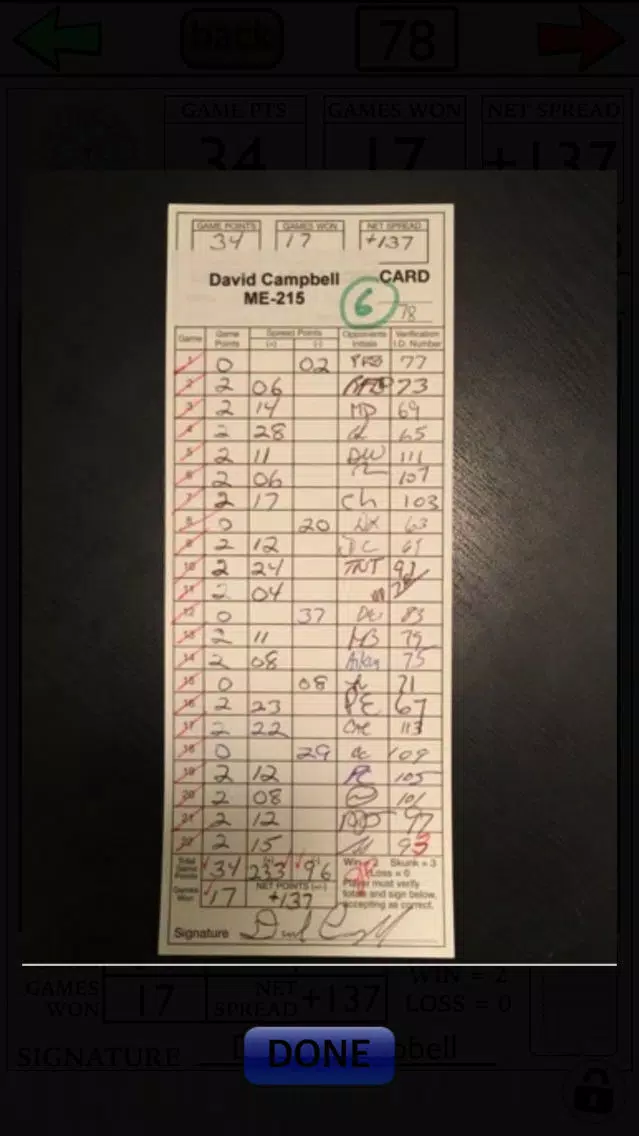 back 78
GAME PTS GAMES WON NET SPREAD
34 17 +137
GAME POINTS GAMES WON NET SPREAD
34 17 +137
David Campbell CARD
ME-215 6 78
Game Game Points Spread Points (+) (-) Opponents Initials Verification I.D. Number
1 0 02 77
2 2 06 73
3 2 14 MP 69
4 2 28 65
5 2 11 DW 111
6 2 06 107
7 2 17 Ch 103
8 0 20 63
9 2 12 JC
10 2 24 TNT
11 2 04
12 0 37 83
13 2 11 MB 79
14 2 08 75
15 0 08 71
16 2 23 PE 67
17 2 22 113
18 0 29 109
19 2 12 105
20 2 08 101
21 2 12 97
22 2 15 93
Total Game Points 34 (+) 233 (-) 96 Win = 2 Skunk = 3
Loss = 0
Games Won 17 NET POINTS (+/-) +137 Player must verify
totals and sign below,
accepting as correct.
Signature
GAMES WON 17 NET SPREAD +137 WIN = 2
LOSS = 0
DONE
SIGNATURE